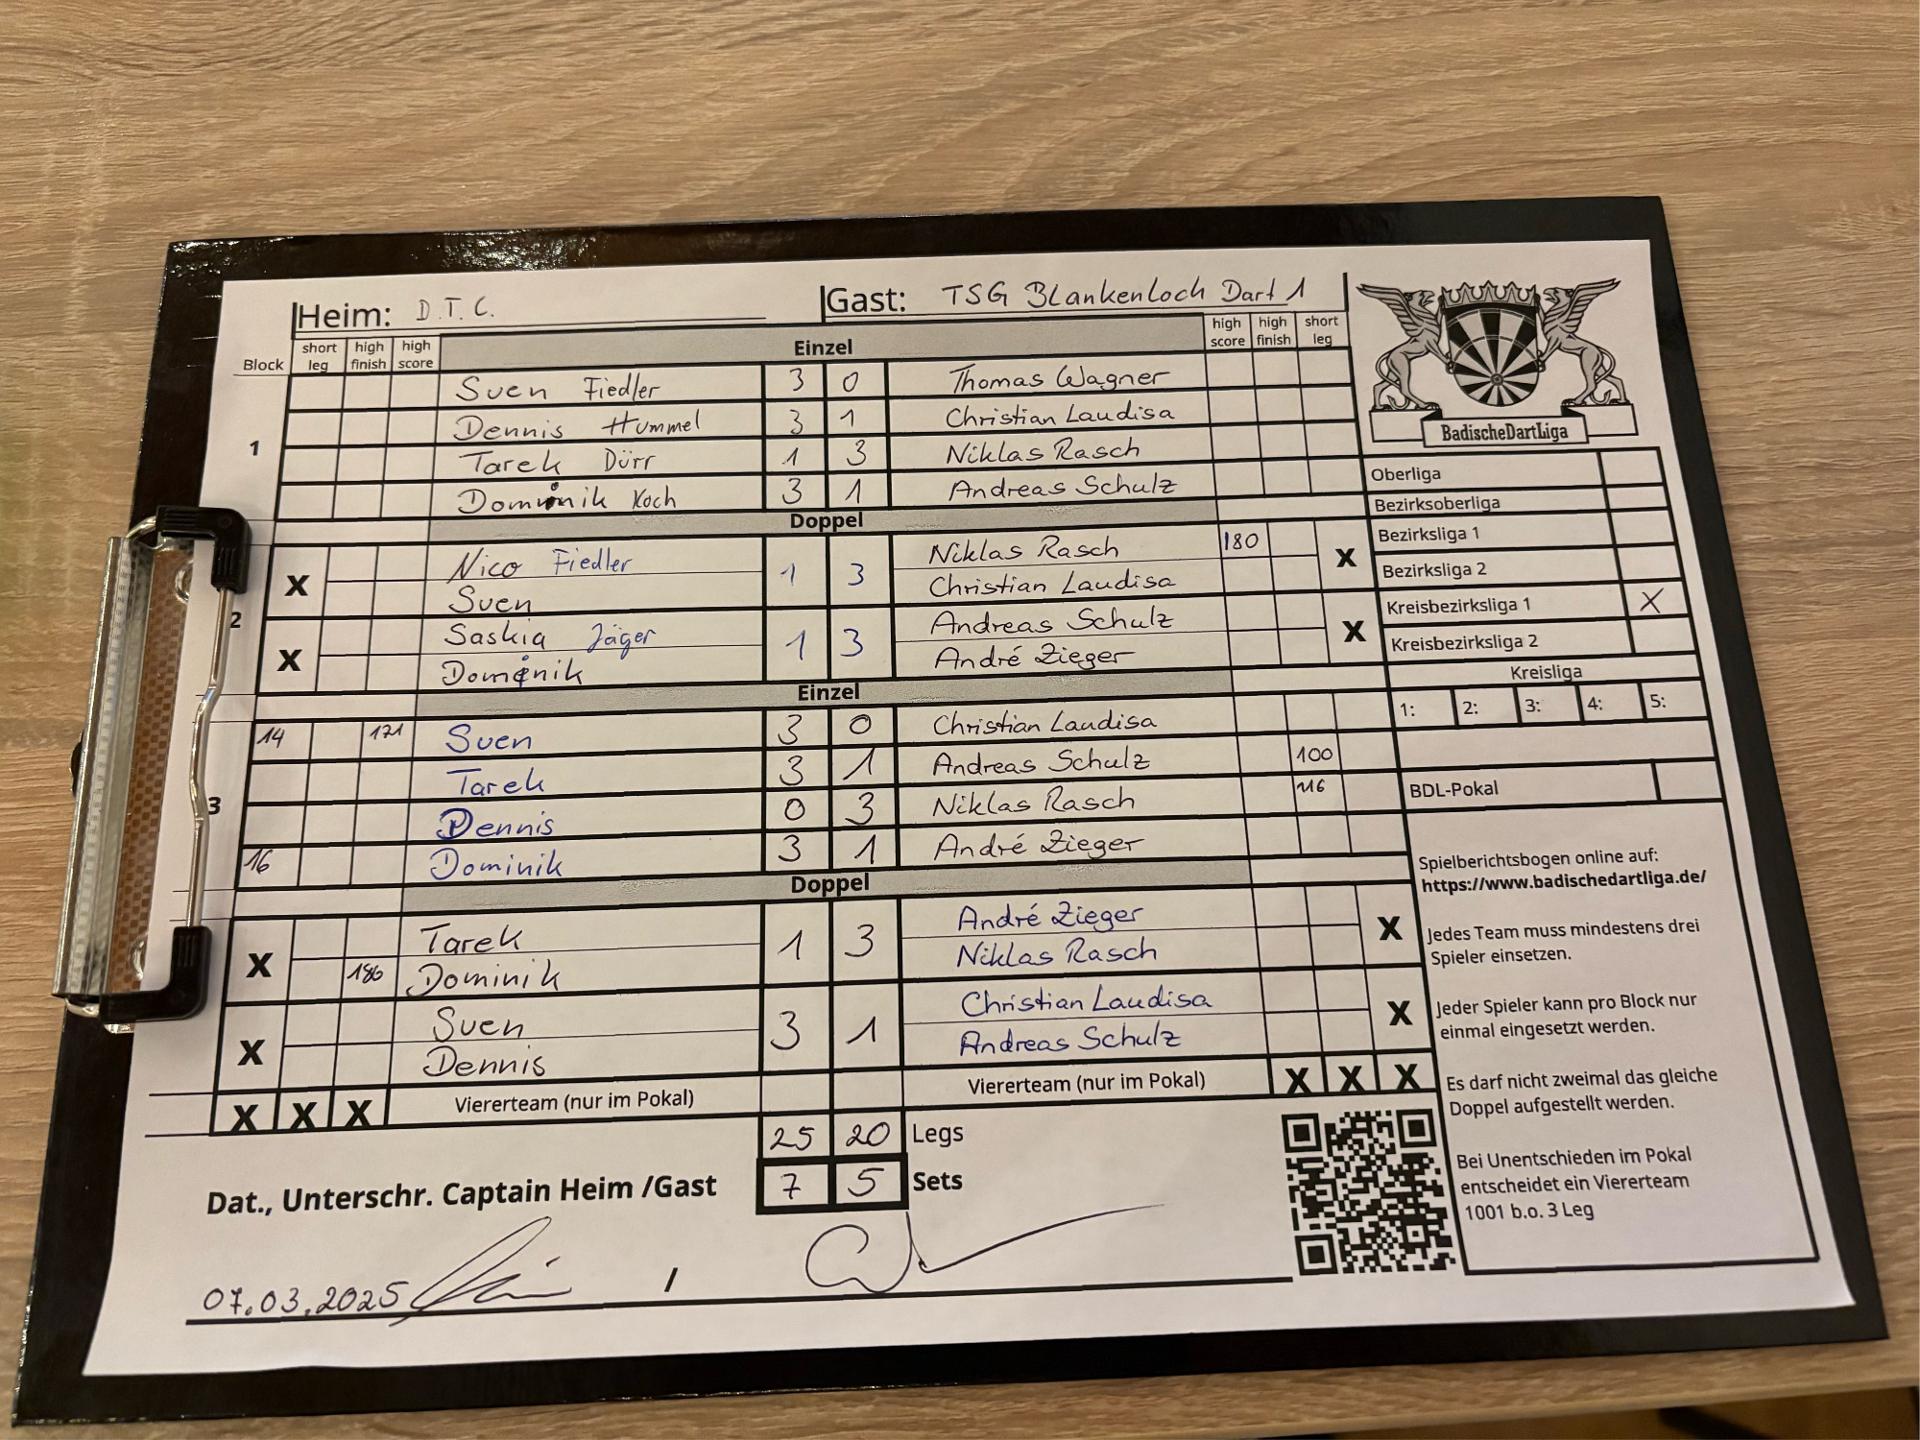 Heim: D.T.C. Gast: TSG Blankenloch Dart 1
Block short leg high finish high score Einzel high score high finish short leg
1
Sven Fiedler 3 0 Thomas Wagner
Dennis Hummel 3 1 Christian Laudisa
Tarek Dürr 1 3 Niklas Rasch
Dominik Koch 3 1 Andreas Schulz
Doppel
2
X Nico Fiedler 1 3 Niklas Rasch 180 X
Sven Christian Laudisa
X Saskia Jäger 1 3 Andreas Schulz X
Dominik André Zieger
Einzel
3
14 171 Sven 3 0 Christian Laudisa
Tarek 3 1 Andreas Schulz 100
Dennis 0 3 Niklas Rasch 116
16 Dominik 3 1 André Zieger
Doppel
X Tarek 1 3 André Zieger X
186 Dominik Niklas Rasch
X Sven 3 1 Christian Laudisa X
Dennis Andreas Schulz
X X X Viererteam (nur im Pokal) Viererteam (nur im Pokal) X X X
25 20 Legs
7 5 Sets
Dat., Unterschr. Captain Heim /Gast
07.03.2025 /
BadischeDartLiga
Oberliga
Bezirksoberliga
Bezirksliga 1
Bezirksliga 2
Kreisbezirksliga 1 X
Kreisbezirksliga 2
Kreisliga
1: 2: 3: 4: 5:
BDL-Pokal
Spielberichtsbogen online auf:
https://www.badischedartliga.de/
Jedes Team muss mindestens drei
Spieler einsetzen.
Jeder Spieler kann pro Block nur
einmal eingesetzt werden.
Es darf nicht zweimal das gleiche
Doppel aufgestellt werden.
Bei Unentschieden im Pokal
entscheidet ein Viererteam
1001 b.o. 3 Leg